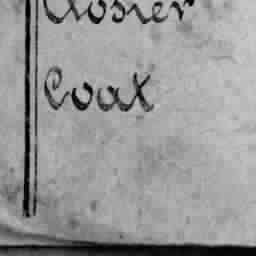 Closier
Coat